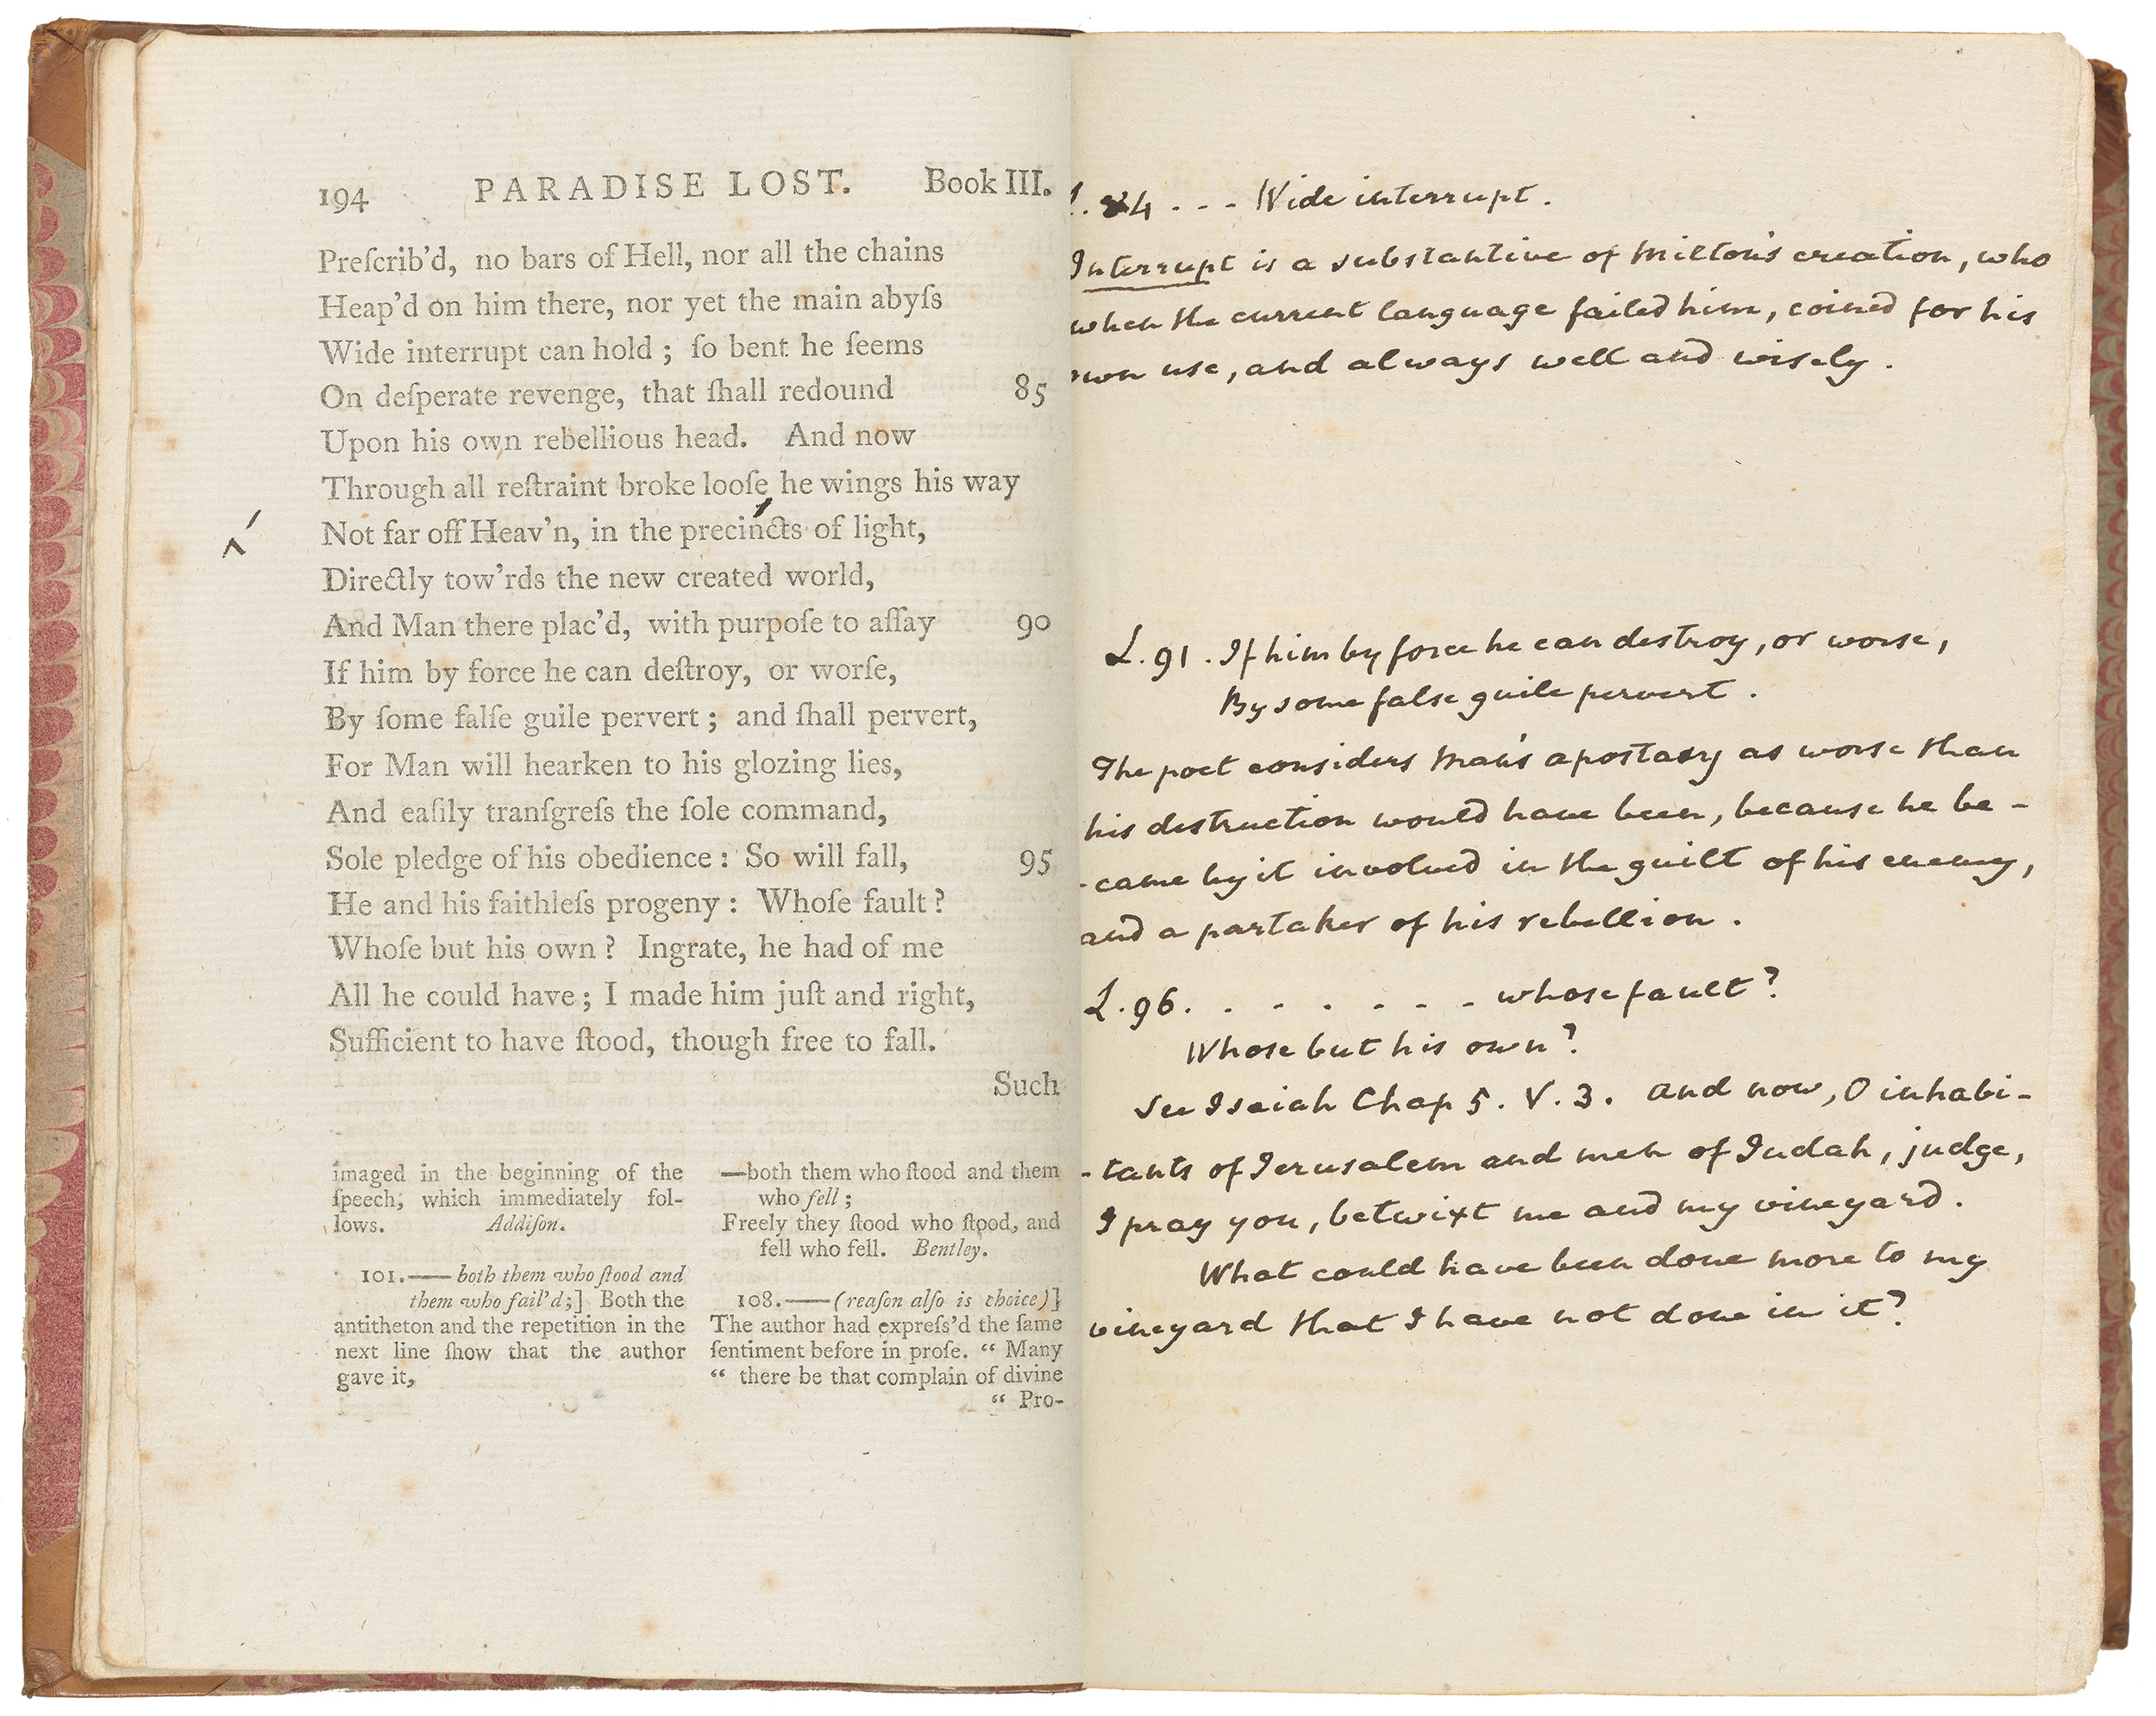 194 PARADISE LOST. Book III.
Preſcrib'd, no bars of Hell, nor all the chains
Heap'd on him there, nor yet the main abyſs
Wide interrupt can hold ; ſo bent he ſeems
On deſperate revenge, that ſhall redound 85
Upon his own rebellious head. And now
Through all reſtraint broke looſe he wings his way
Not far off Heav'n, in the precincts of light,
Directly tow'rds the new created world,
And Man there plac'd, with purpoſe to aſſay 90
If him by force he can deſtroy, or worſe,
By ſome falſe guile pervert ; and ſhall pervert,
For Man will hearken to his glozing lies,
And eaſily tranſgreſs the ſole command,
Sole pledge of his obedience : So will fall, 95
He and his faithleſs progeny : Whoſe fault ?
Whoſe but his own ? Ingrate, he had of me
All he could have ; I made him juſt and right,
Sufficient to have ſtood, though free to fall.
Such
imaged in the beginning of the
ſpeech, which immediately fol-
lows. Addiſon.
101.—— both them who ſtood and
them who fail'd;] Both the
antitheton and the repetition in the
next line ſhow that the author
gave it,
—both them who ſtood and them
who fell ;
Freely they ſtood who ſtood, and
fell who fell. Bentley.
108.——(reaſon alſo is choice)]
The author had expreſs'd the ſame
ſentiment before in proſe. “ Many
“ there be that complain of divine
“ Pro-
l. 84 - - - Wide interrupt.
Interrupt is a substantive of Milton's creation, who
when the current language failed him, coined for his
own use, and always well and wisely.
L. 91. If him by force he can destroy, or worse,
By some false guile pervert.
The poet considers Man's apostasy as worse than
his destruction would have been, because he be-
-came by it involved in the guilt of his enemy,
and a partaker of his rebellion.
L. 96. . . - . - - - whose fault?
Whose but his own?
See Isaiah Chap 5. V. 3. And now, O inhabi-
-tants of Jerusalem and men of Judah, judge,
I pray you, betwixt me and my vineyard.
What could have been done more to my
vineyard that I have not done in it?